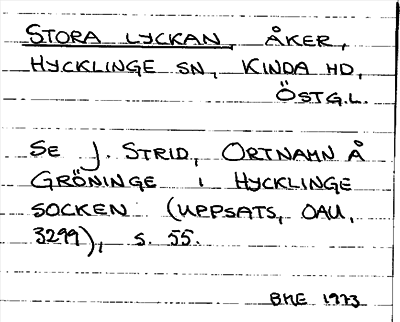 STORA LYCKAN, ÅKER,
HYCKLINGE SN, KINDA HD,
ÖSTG.L.
SE J. STRID, ORTNAMN Å
GRÖNINGE I HYCKLINGE
SOCKEN (UPPSATS, OAU,
3299), S. 55.
BME 1973